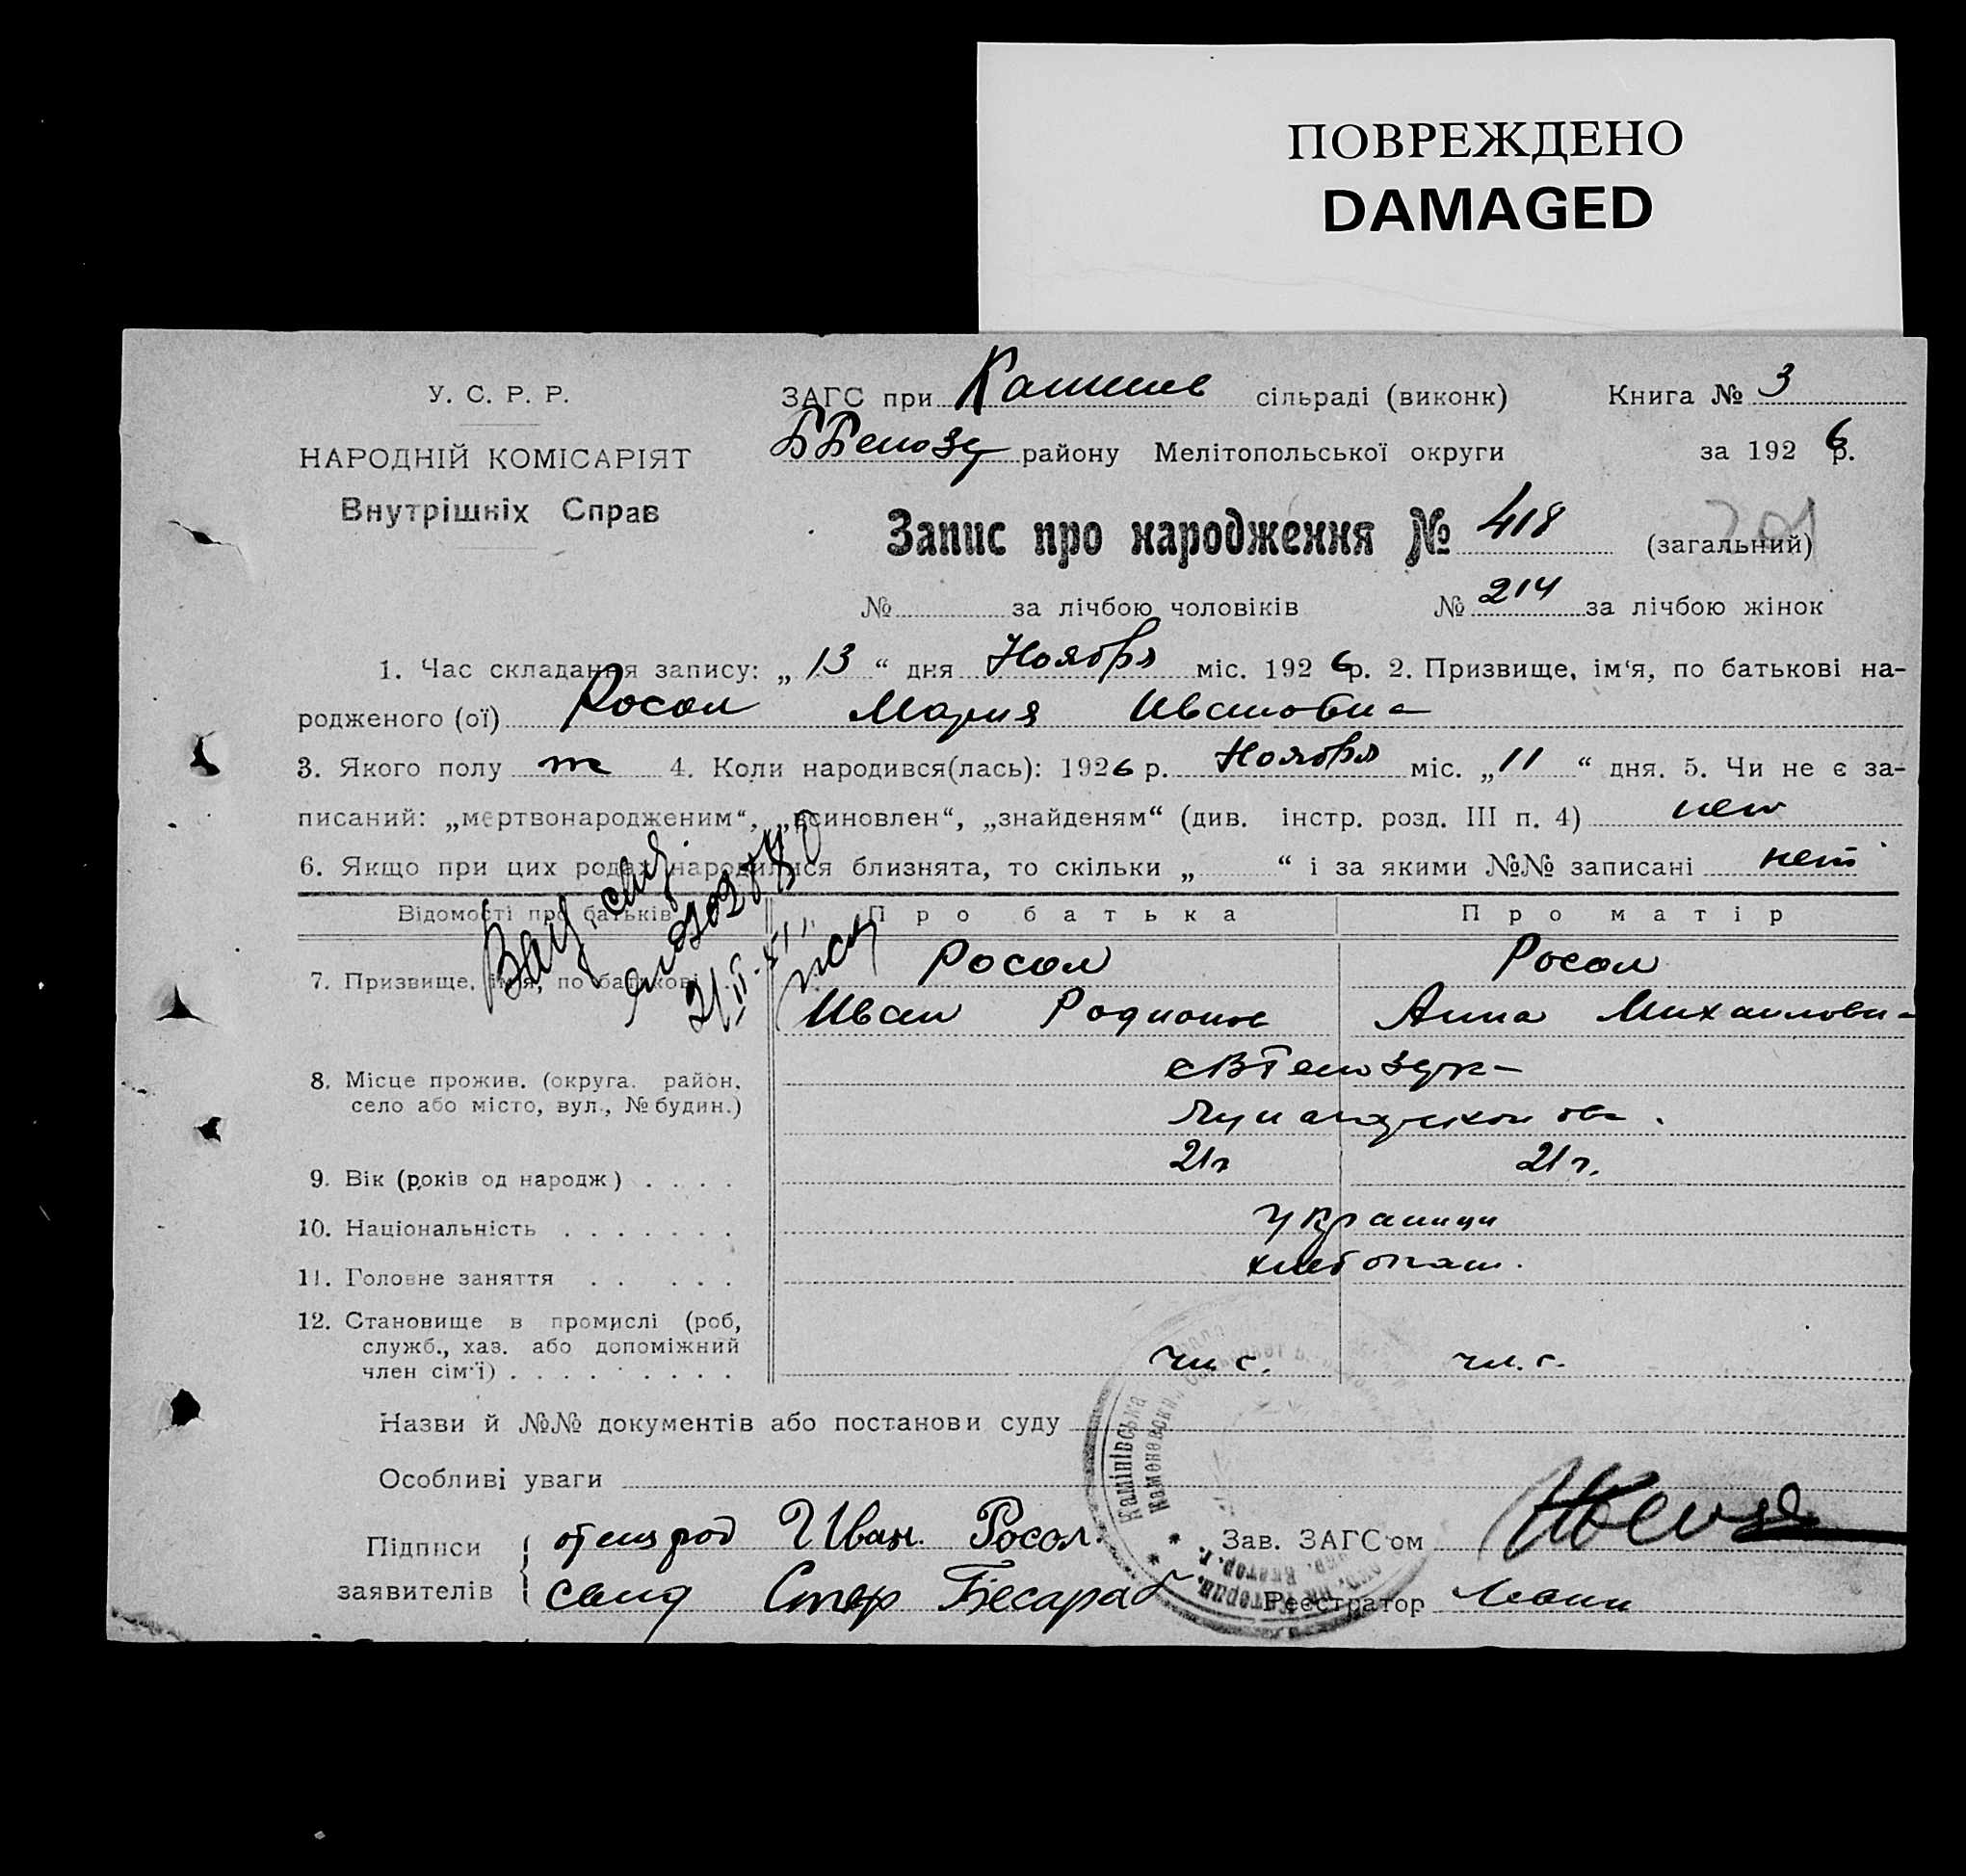 ПОВРЕЖДЕНО
DAMAGED
У. С. Р. Р.
НАРОДНІЙ КОМІСАРІЯТ
Внутрішніх Справ
ЗАГС при сільраді (виконк) Книга № 3
району Мелітопольської округи за 1926 р.
Запис про народження № 418 (загальний)
№ за лічбою чоловіків № 214 за лічбою жінок
1. Час складання запису: „ 13 “ дня Ноября міс. 1926 р. 2. Призвище, ім‘я, по батькові на-
родженого (ої) Росол Мария Ивановна
3. Якого полу ж 4. Коли народився(лась): 1926 р. Ноября міс. „ 11 “ дня. 5. Чи не є за-
писаний: „мертвонародженим“, „всиновлен“, „знайденям“ (див. інстр. розд. III п. 4) нет
6. Якщо при цих родах народилися близнята, то скільки „ “ і за якими №№ записані нет
Відомості про батьків Про батька Про матір
7. Призвище, ім‘я, по батькові Росол Росол
Иван Родионов Анна Михайловн
8. Місце прожив. (округа, район,
село або місто, вул., № будин.)
9. Вік (років од народж) . . . . 21 г 21 г.
10. Національність . . . . . . . украинци
11. Головне заняття . . . . . хлебопаш.
12. Становище в промислі (роб,
служб., хаз. або допоміжний
член сім‘ї) . . . . . . . . . чл. с. чл. с.
Назви й №№ документів або постанови суду
Особливі уваги
Підписи
заявителів
Иван Росол.
Бесараб
Зав. ЗАГС‘ом
Реєстратор
Камінівська